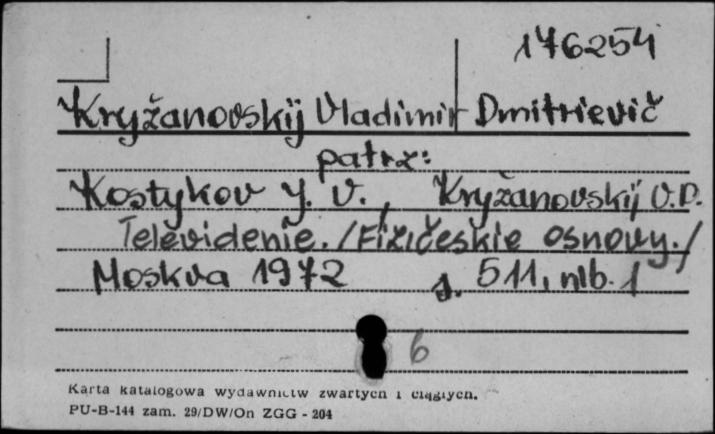 176254
Kryžanovskij Vladimir Dmitrievič
patrz:
Kostykov Y. V., Kryžanovskij V.D.
Televidenie. /Fizičeskie osnovy./
Moskva 1972 s. 511, nlb. 1
6
Karta katalogowa wydawnictw zwartych i ciągłych.
PU-B-144 zam. 29/DW/On ZGG - 204